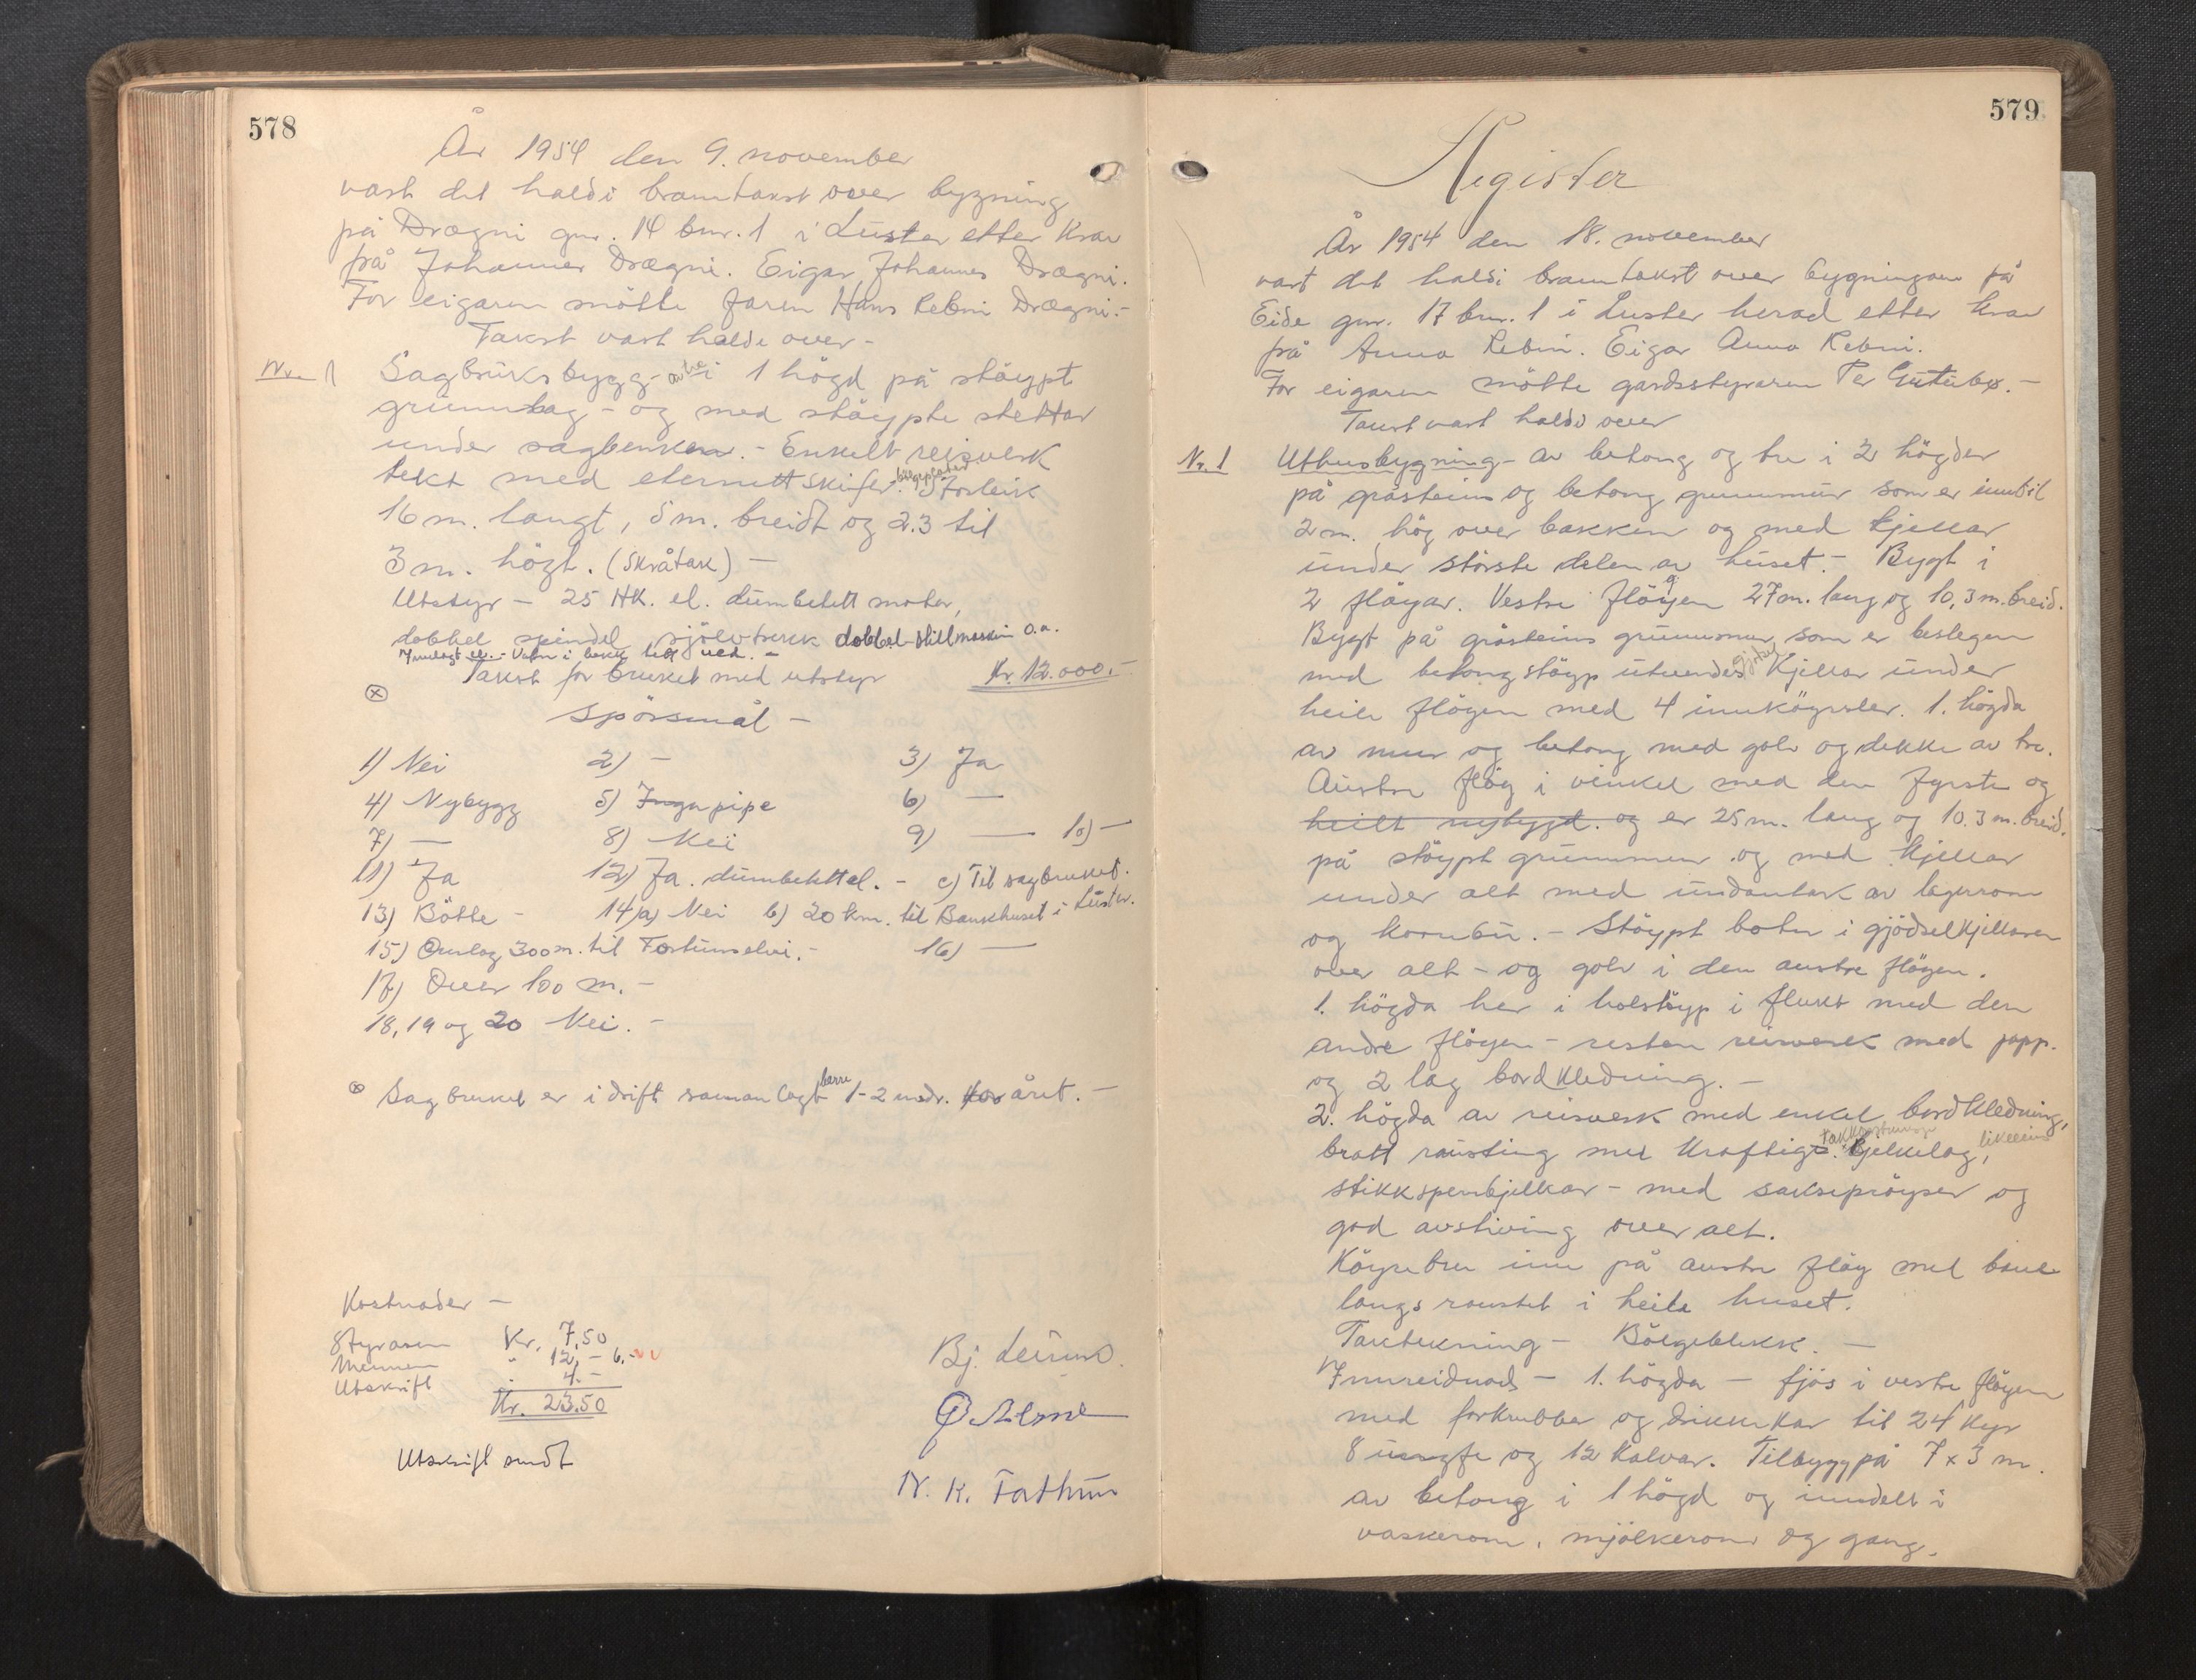 578
År 1954 den 9. november
vart det haldi branntakst over bygning
på Drægni gnr. 14 bnr. 1 i Luster etter krav
frå Johannes Drægni. Eigar Johannes Drægni.
For eigaren møtte faren Hans Rebni Drægni.-
Takst vart halde over -
Nr. 1 Sagbruksbygg - av tre i 1 högd på støypt
grunnlag - og med støypte støttar
under sagbenken. - Enkelt reisverk
tekt med eternittskifer. bølgeplater Storleik
16 m. langt, 5 m. breidt og 2.3 til
3 m. högt. (Skråtak) -
Utstyr - 25 HK. el. dumbelett motor,
dobbel spindel, sjølvtrekk dobbel stillmaskin o.a.
Innlagt el. - Vatn i bekk tett ved. -
Takst for bruket med utstyr Kr. 12.000.-
Spörsmål -
1) Nei 2) - 3) Ja
4) Nybygg 5) Inga pipe 6) -
7) - 8) Nei 9) - 10) -
11) Ja 12) Ja. dumbelett el. - c) Til sagbruket.
13) Bötte - 14) a) Nei b) 20 km. til Bankhuset i Luster.
15) Omlag 300 m. til Fortunselvi. - 16) -
17) Over 100 m. -
18, 19 og 20 Nei. -
x Sagbruket er i drift samanlagt barre 1-2 mndr. for året. -
Kostnader -
Styraren Kr. 7,50
Mennene " 12,- 6.-
Utskrift " 4.-
Kr. 23.50
Utskrift sendt
Bj. Leirmo.
N. K. Fortun
579
Register
År 1954 den 18. november
vart det haldi branntakst over bygningar på
Eide gnr. 17 bnr. 1 i Luster herad etter krav
frå Anna Rebni. Eigar Anna Rebni.
For eigaren møtte gardsstyraren Per Gutubø. -
Takst vart haldi over
Nr. 1 Uthusbygning - av betong og tre i 2 högder
på gråsteins og betong grunnmur som er inntil
2 m. hög over bakken og med kjellar
under største delen av huset. - Bygt i
2 fløyar. Vestre fløygen 27 m. lang og 10,3 m. breid.
Bygt på gråsteins grunnmur, som er beslegen
med betongstøyp utvendes. Kjellar under
heile fløyen med 4 innkøyrsler. 1. högda
av mur og betong med golv og dekke av tre.
Austre fløy i vinkel med den fyrste og
heilt nybygd. og er 25 m. lang og 10.3 m. breid.
på støypt grunnmur og med kjellar
under alt med undantak av lagerrom
og kornbu. - Støypt botn i gjødselkjellaren
over alt - og golv i den austre fløyen.
1. högda her i holstøyp i flukt med den
andre fløyen - resten reisverk med papp.
og 2 lag bordkledning. -
2. högda av reisverk med enkel bordkledning,
bratt rausting med kraftigt. bjelkelag, likeeins
stikkspenbjelkar - med saksesprøyser og
god avstiving over alt.
Köyrebru inn på austre fløy med bane
langs raustet i heile huset.
Taktekning - Bölgeblekk. -
Innreidnad - 1. högda - fjøs i vestre fløyen
med forkrubber og drikkekar til 24 kyr
8 ungfe og 12 kalvar. Tilbygg på 7 x 3 m.
av betong i 1 högd og inndelt i
vaskerom, mjølkerom og gang.